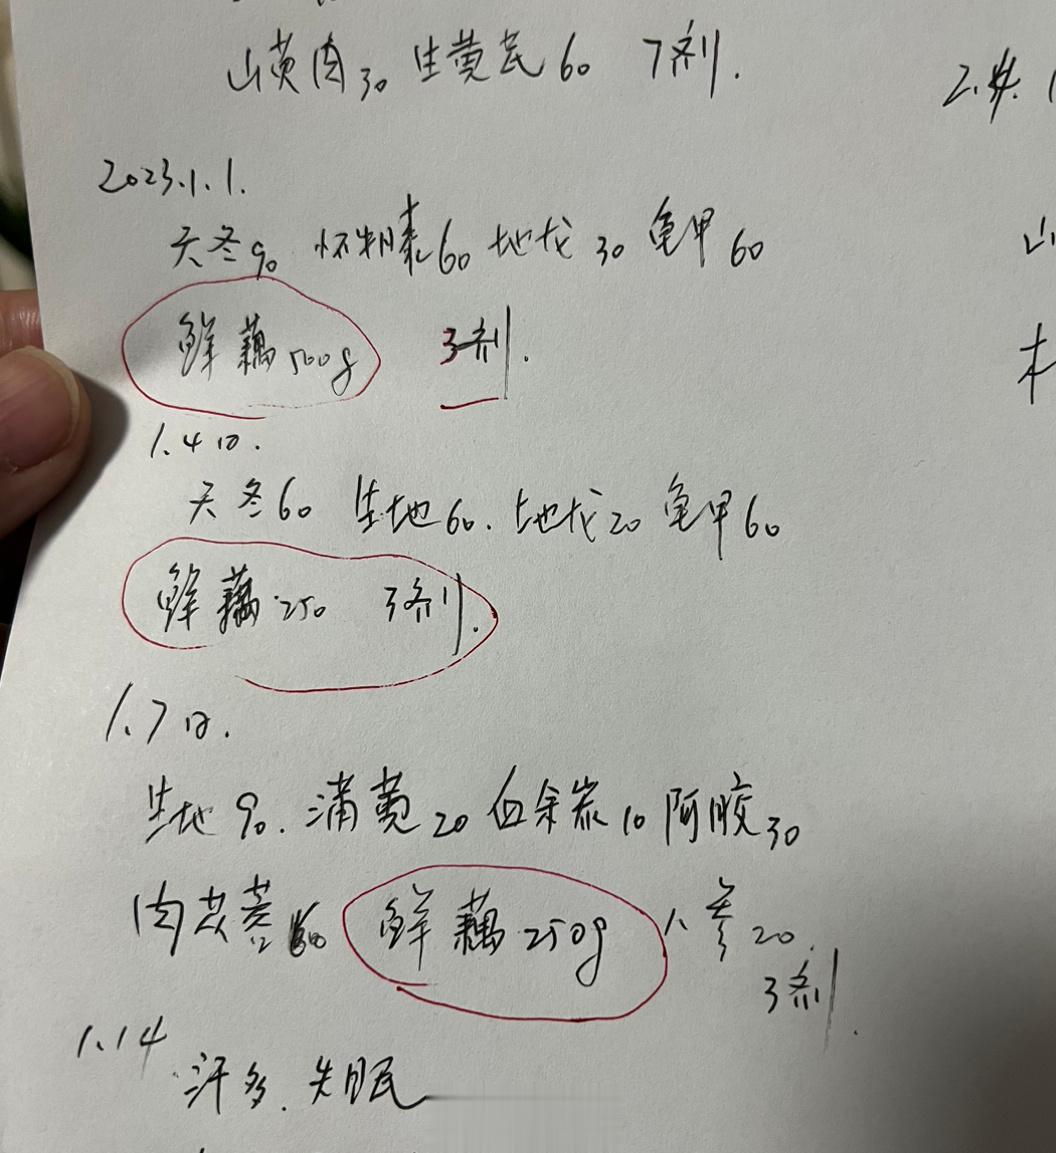 山萸肉30 生黄芪60 7剂.
2023.1.1.
天冬90 怀牛膝60 地龙30 龟甲60
鲜藕500g 3剂.
1.4日.
天冬60 生地60. 地龙20 龟甲60
鲜藕250 3剂.
1.7日.
生地90. 蒲黄20 血余炭10 阿胶30
肉苁蓉60 鲜藕250g 人参20.
3剂.
1.14
汗多. 失眠
2.
山
本